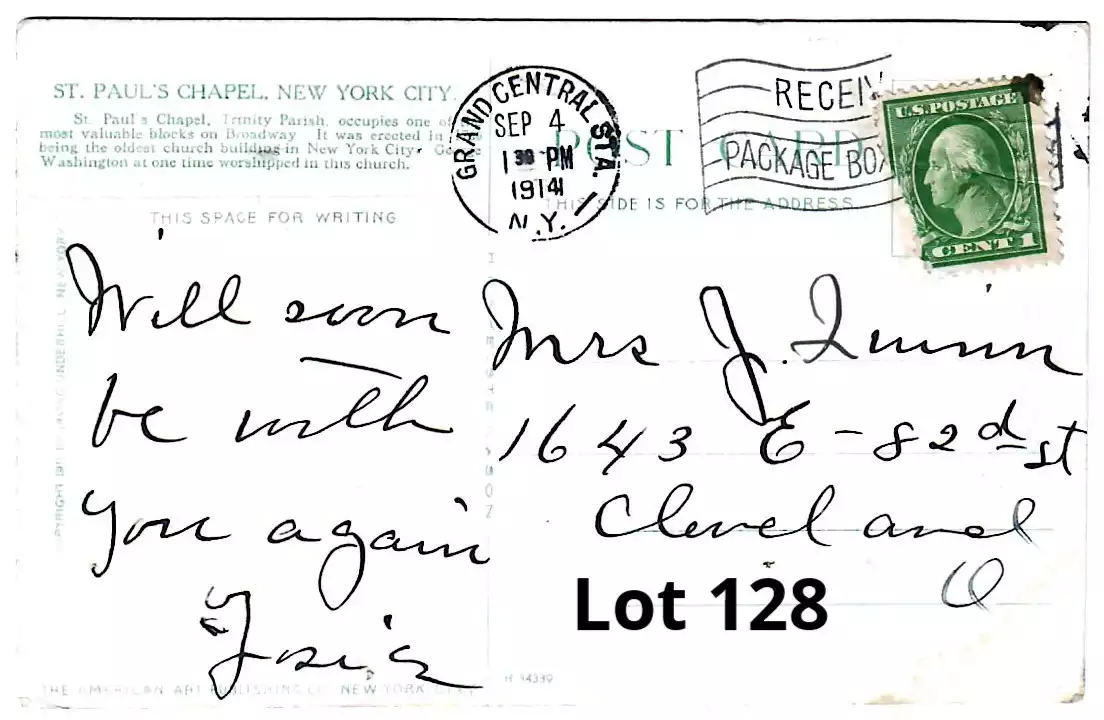 ST. PAUL'S CHAPEL, NEW YORK CITY.
St. Paul's Chapel, Trinity Parish, occupies one of
most valuable blocks on Broadway It was erected in
being the oldest church building in New York City.
Washington at one time worshipped in this church.
THIS SPACE FOR WRITING
Will soon
be with
you again
Josie
THE AMERICAN ART PUBLISHING CO. NEW YORK CITY
H 14339
GRAND CENTRAL STA.
SEP 4
1 30 PM
1914
N.Y.
1
RECEIV
PACKAGE BOX
POST CARD
THIS SIDE IS FOR THE ADDRESS
U.S. POSTAGE
CENT 1
Mrs J. Quinn
1643 E - 82nd st
Cleveland
O
Lot 128